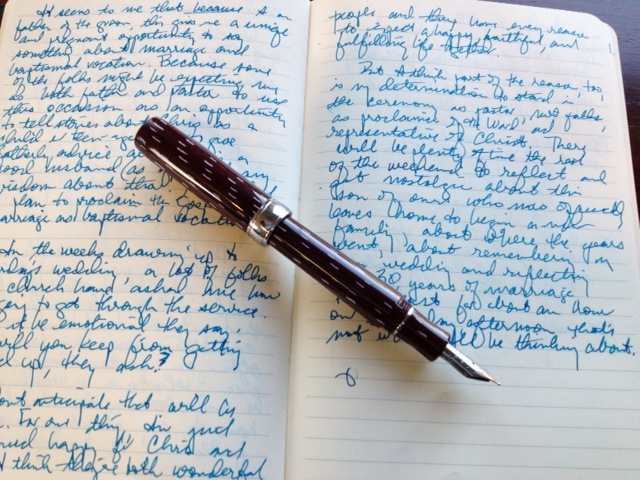 It seems to me that because I am
father of the groom, this gives me a unique
and poignant opportunity to say
something about marriage and
baptismal vocation. Because some
of the folks might be expecting me
as both father and pastor to use
this occasion as an opportunity
to tell stories about Chris as a
child
fatherly advice
good husband
wisdom about that
plan to proclaim the Gospel
marriage as baptismal vocation
In the weeks drawing up to
wedding a lot of folks
church have asked me how
to get through the service.
be emotional they say,
will you keep from getting
up, they ask?
don't anticipate that will be
For one thing I'm just
happy for Chris and
I think they're both wonderful
people and they have every reason
to expect a happy, faithful, and
fulfilling life together.
But I think part of the reason, too,
is my determination to stand in
the ceremony as pastor, first of all,
as proclaimer of the Word, and
representative of Christ. There
will be plenty of time the rest
of the weekend to reflect and
get nostalgic about this
son of ours who now
leaves home to begin a new
family, about where the years
went, about remembering my
wedding and reflecting
30 years of marriage
for about an hour
on afternoon, that's
not what I'll be thinking about.